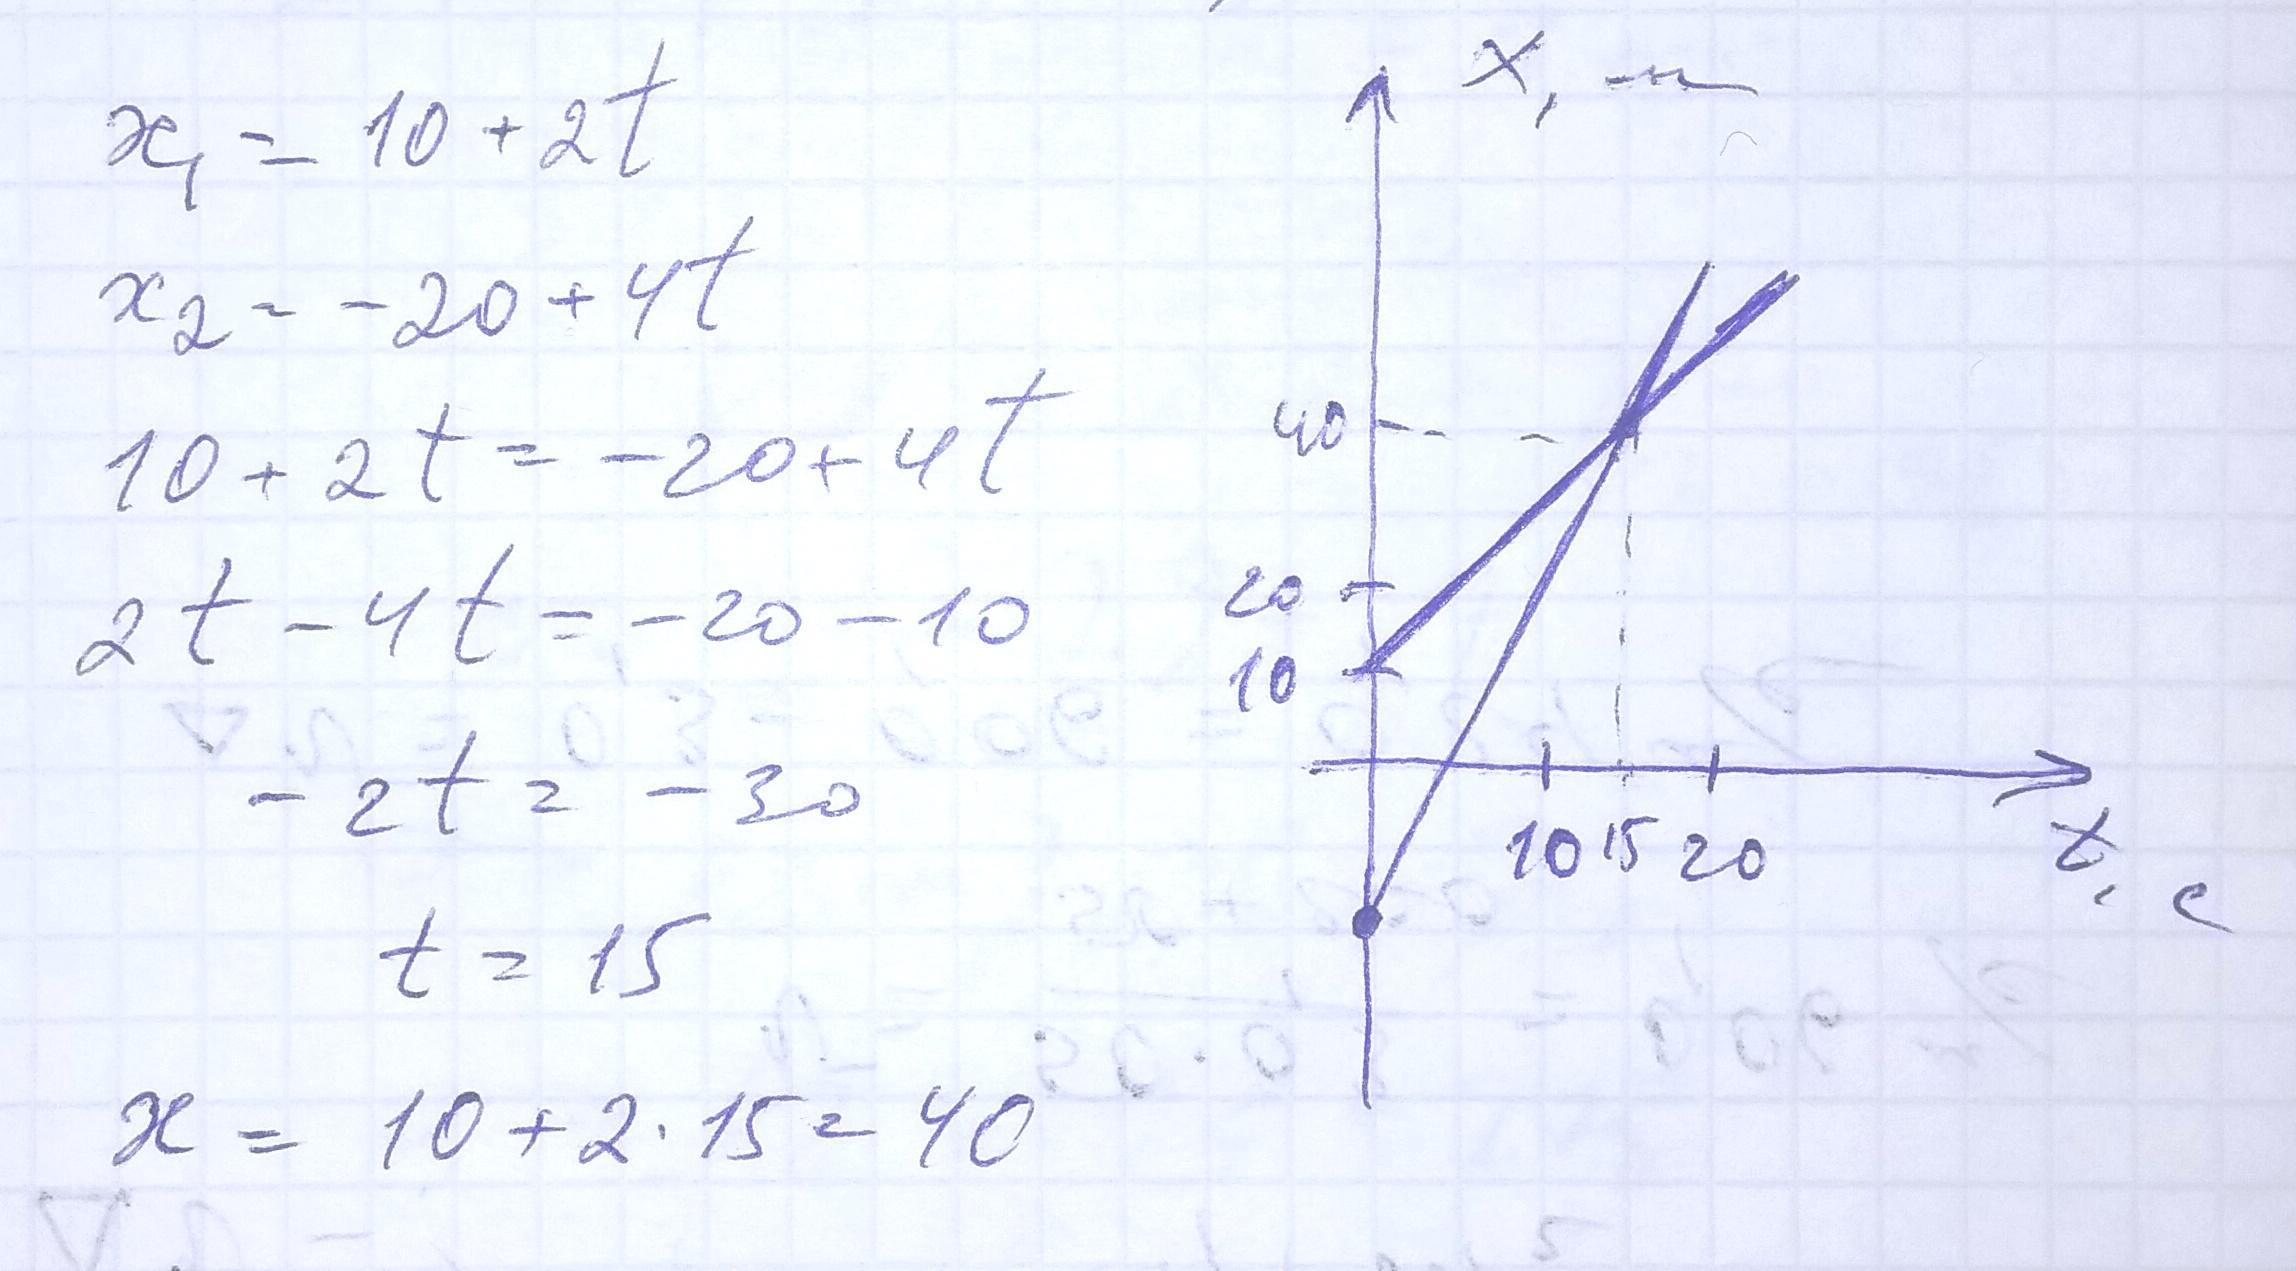 x₁ = 10 + 2t
x₂ = -20 + 4t
10 + 2t = -20 + 4t
2t - 4t = -20 - 10
-2t = -30
t = 15
x = 10 + 2·15 = 40
x, м
40
20
10
10 15 20
t, c